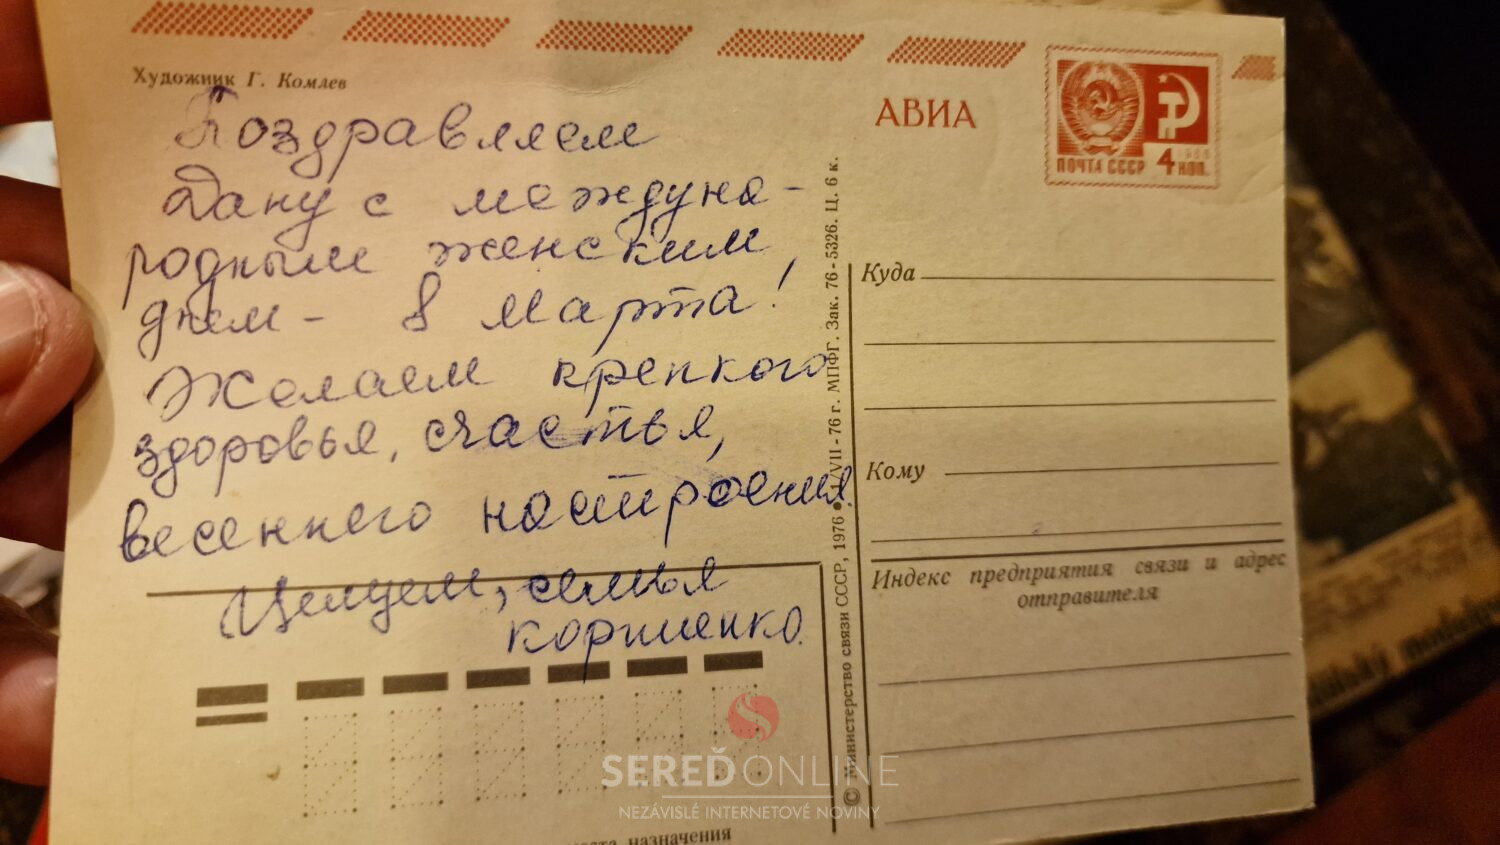 Художник Г. Комлев
Поздравляем
Дану с междуна-
родным женским
днем - 8 марта!
Желаем крепкого
здоровья, счастья,
весеннего настроения.
Целуем, семья
Корниенко.
АВИА
ПОЧТА СССР 4 КОП.
1966
Куда
Кому
Индекс предприятия связи и адрес
отправителя
© Министерство связи СССР, 1976 • 1/VII - 76 г. МПФГ. Зак. 76 - 5326. Ц. 6 к.
места назначения
SEREĎ ONLINE
NEZÁVISLÉ INTERNETOVÉ NOVINY